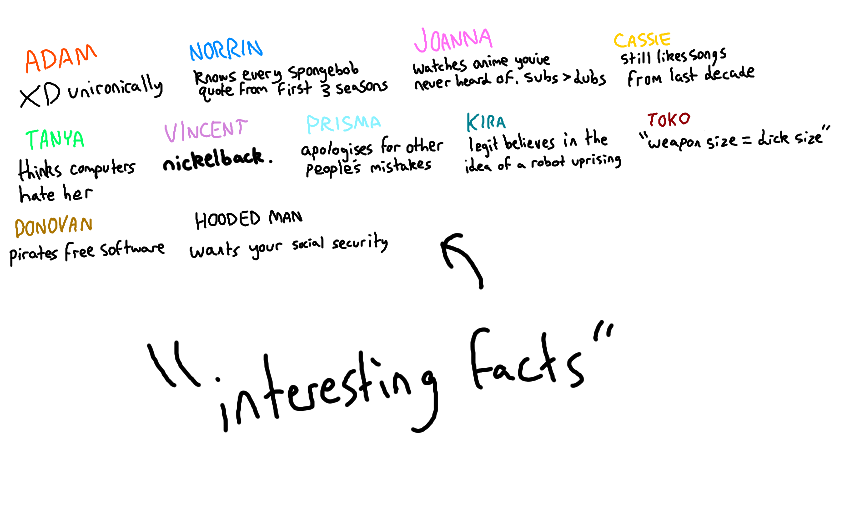 ADAM
XD unironically
NORRIN
Knows every spongebob
quote from first 3 seasons
JOANNA
Watches anime you've
never heard of. Subs > dubs
CASSIE
still likes songs
from last decade
TANYA
thinks computers
hate her
VINCENT
nickelback.
PRISMA
apologises for other
people's mistakes
KIRA
legit believes in the
idea of a robot uprising
TOKO
"weapon size = dick size"
DONOVAN
pirates free software
HOODED MAN
wants your social security
"interesting facts"